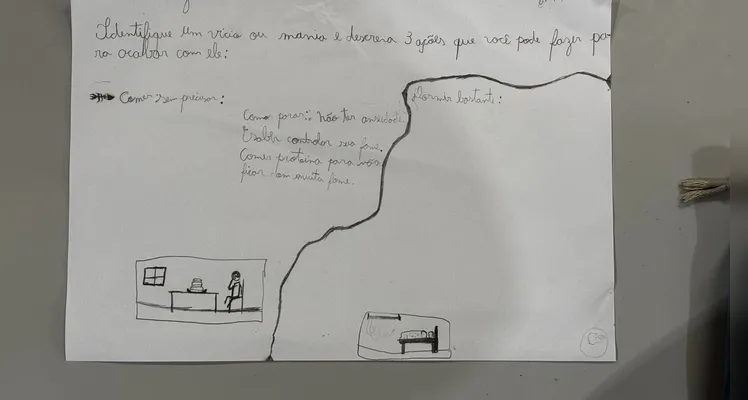 Identifique um vício ou mania e descreva 3 ações que você pode fazer pa-
ra acabar com ele:
Comer sem precisar:
Dormir bastante:
Como parar: Não ter ansiedade
saber controlar seu fome.
Comer proteína para não
ficar com muita fome.